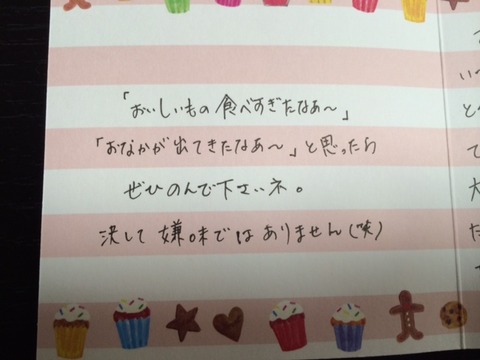 「おいしいもの食べすぎたなぁ〜」
「おなかが出てきたなぁ〜」と思ったら
ぜひのんで下さいネ。
決して嫌味ではありません(笑)
い
と
て
大